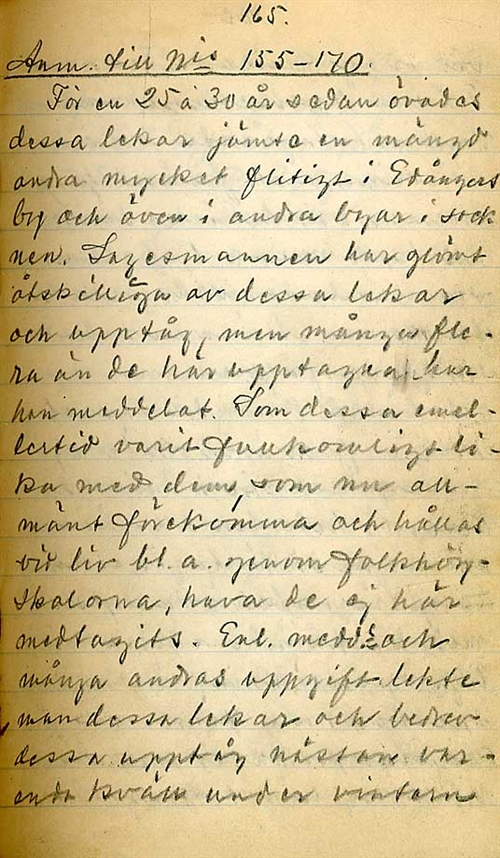 165.
Anm. till Nis 155-170.
För en 25 à 30 år sedan övades
dessa lekar jämte en mängd
andra mycket flitigt i Edångers
by och även i andra byar i sock
nen. Sagesmannen har glömt
åtskilliga av dessa lekar
och upptåg, men många fle-
ra än de här upptagna har
han meddelat. Som dessa emel-
lertid varit fullkomligt li-
ka med dem, som nu all-
mänt förekomma och hållas
vid liv bl. a. genom folkhög-
skolorna, hava de ej här
medtagits. Enl. medd:s och
många andras uppgift lekte
man dessa lekar och bedrev
dessa upptåg nästan var-
enda kväll under vintern